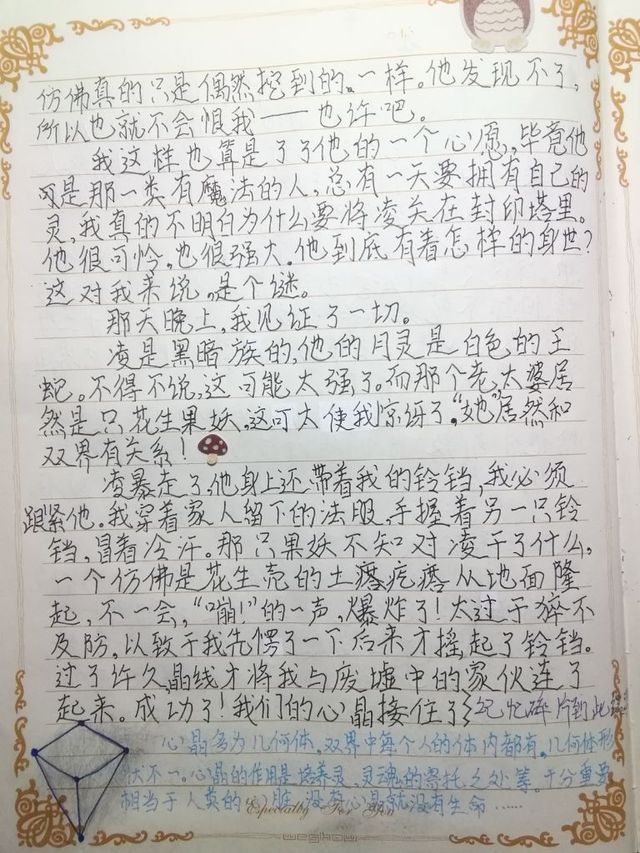 仿佛真的只是偶然挖到的一样。他发现不了，
所以也就不会恨我——也许吧。
我这样也算是了了他的一个心愿，毕竟他
可是那一类有魔法的人，总有一天要拥有自己的
灵，我真的不明白为什么要将凌关在封印塔里。
他很可怜，也很强大。他到底有着怎样的身世？
这对我来说，是个谜。
那天晚上，我见证了一切。
凌是黑暗族的，他的月灵是白色的王
蛇。不得不说，这可能太强了。而那个老太婆居
然是只花生果妖，这可太使我惊讶了，“她”居然和
双界有关系！
凌暴走了，他身上还带着我的铃铛，我必须
跟紧他。我穿着家人留下的法服，手握着另一只铃
铛，冒着冷汗。那只果妖不知对凌干了什么，
一个仿佛是花生壳的土疙疙瘩从地面隆
起，不一会，“嘣！”的一声，爆炸了！太过于猝不
及防，以致于我先愣了一下，后来才摇起了铃铛。
过了许久，晶线才将我与废墟中的家伙连了
起来。成功了！我们的心晶接住了 记忆碎片到此
心晶多为几何体，双界中每个人的体内都有，几何体形
状不一。心晶的作用是培养灵，灵魂的寄托之处等。十分重要
相当于人类的心脏，没有心晶就没有生命……
Especially For You